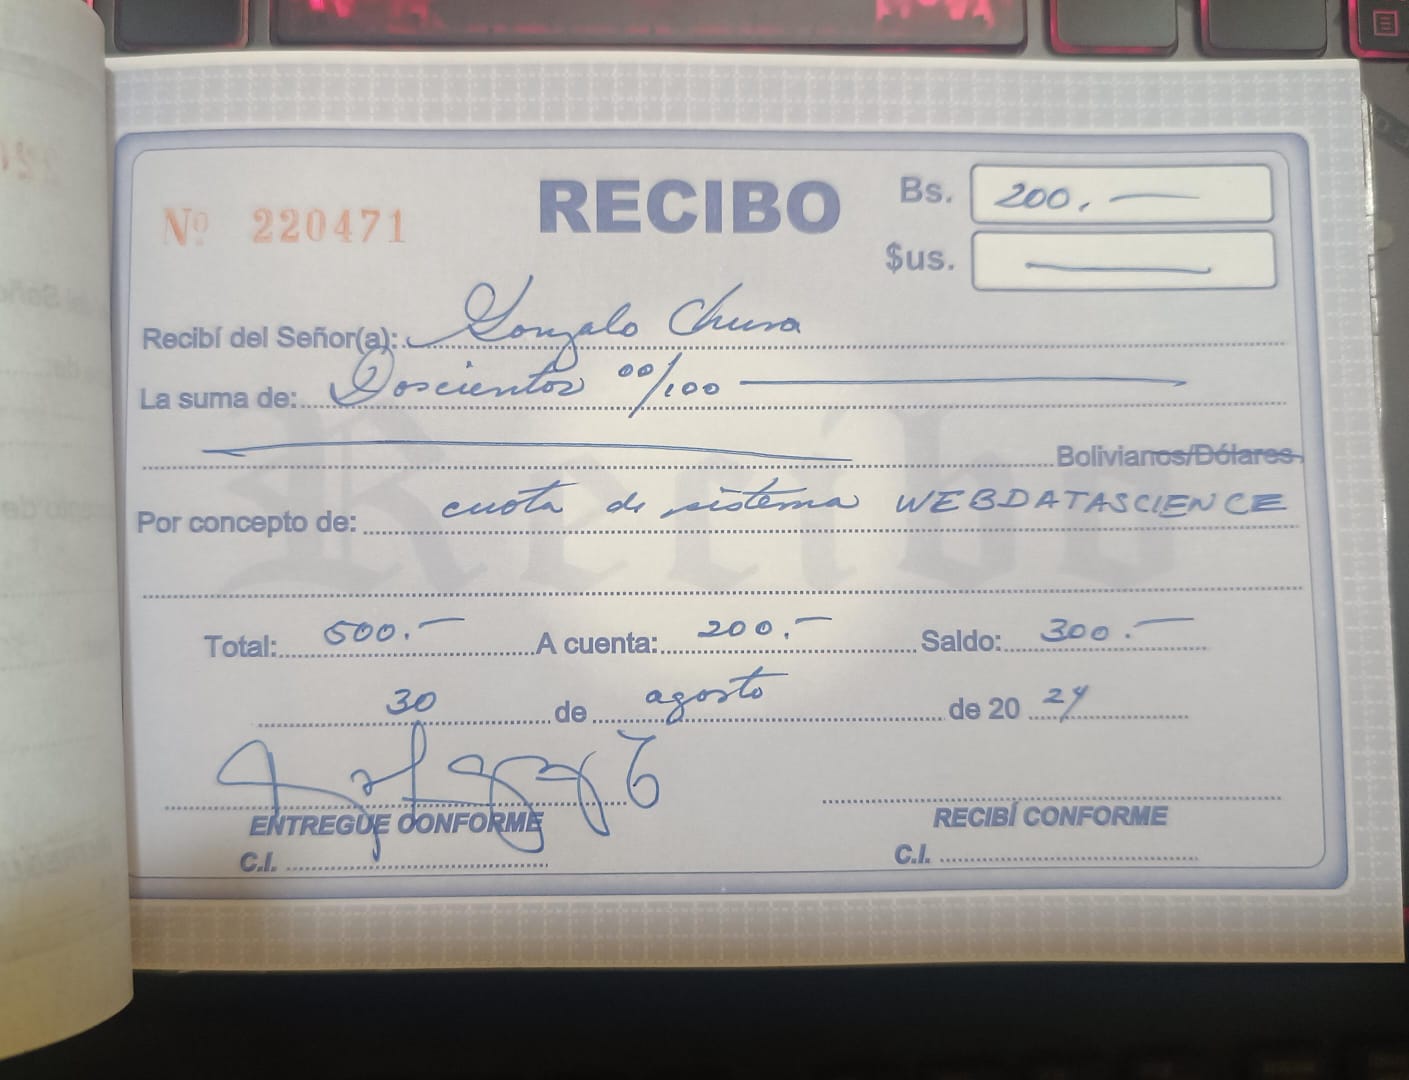 Nº 220471
RECIBO
Bs. 200.—
$us. —
Recibí del Señor(a): Gonzalo Chura
La suma de: Doscientos 00/100
Bolivianos/Dólares
Por concepto de: cuota de sistema WEBDATASCIENCE
Total: 500.— A cuenta: 200.— Saldo: 300.—
30 de agosto de 20 24
ENTREGUE CONFORME RECIBÍ CONFORME
C.I. C.I.
Recibo